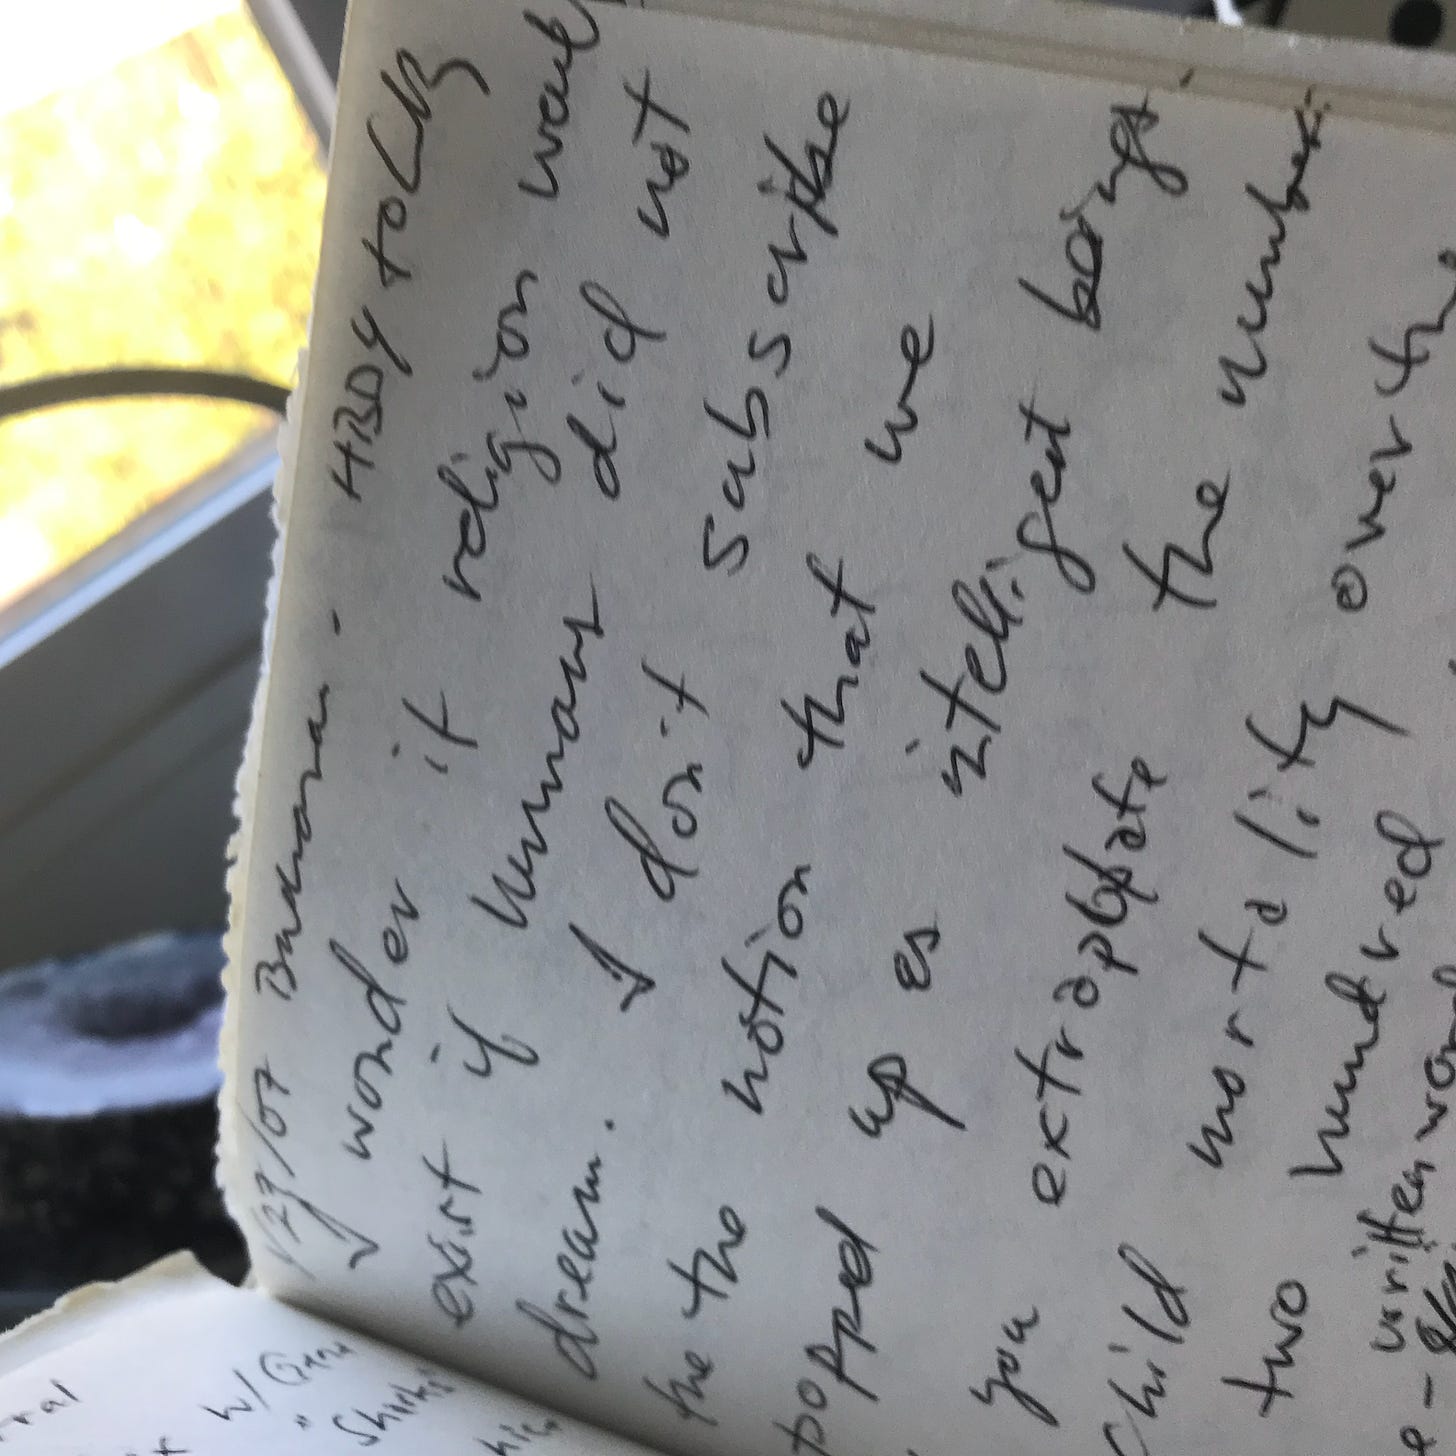 1/23/07 Buchanan - HBDY to LB
I wonder if religion would
exist if humans did not
dream. I don't subscribe
the the notion that we
popped up as intelligent beings.
you extrapolate the number
child mortality over th
two hundred
written word
w/ Gina
"Shirts"